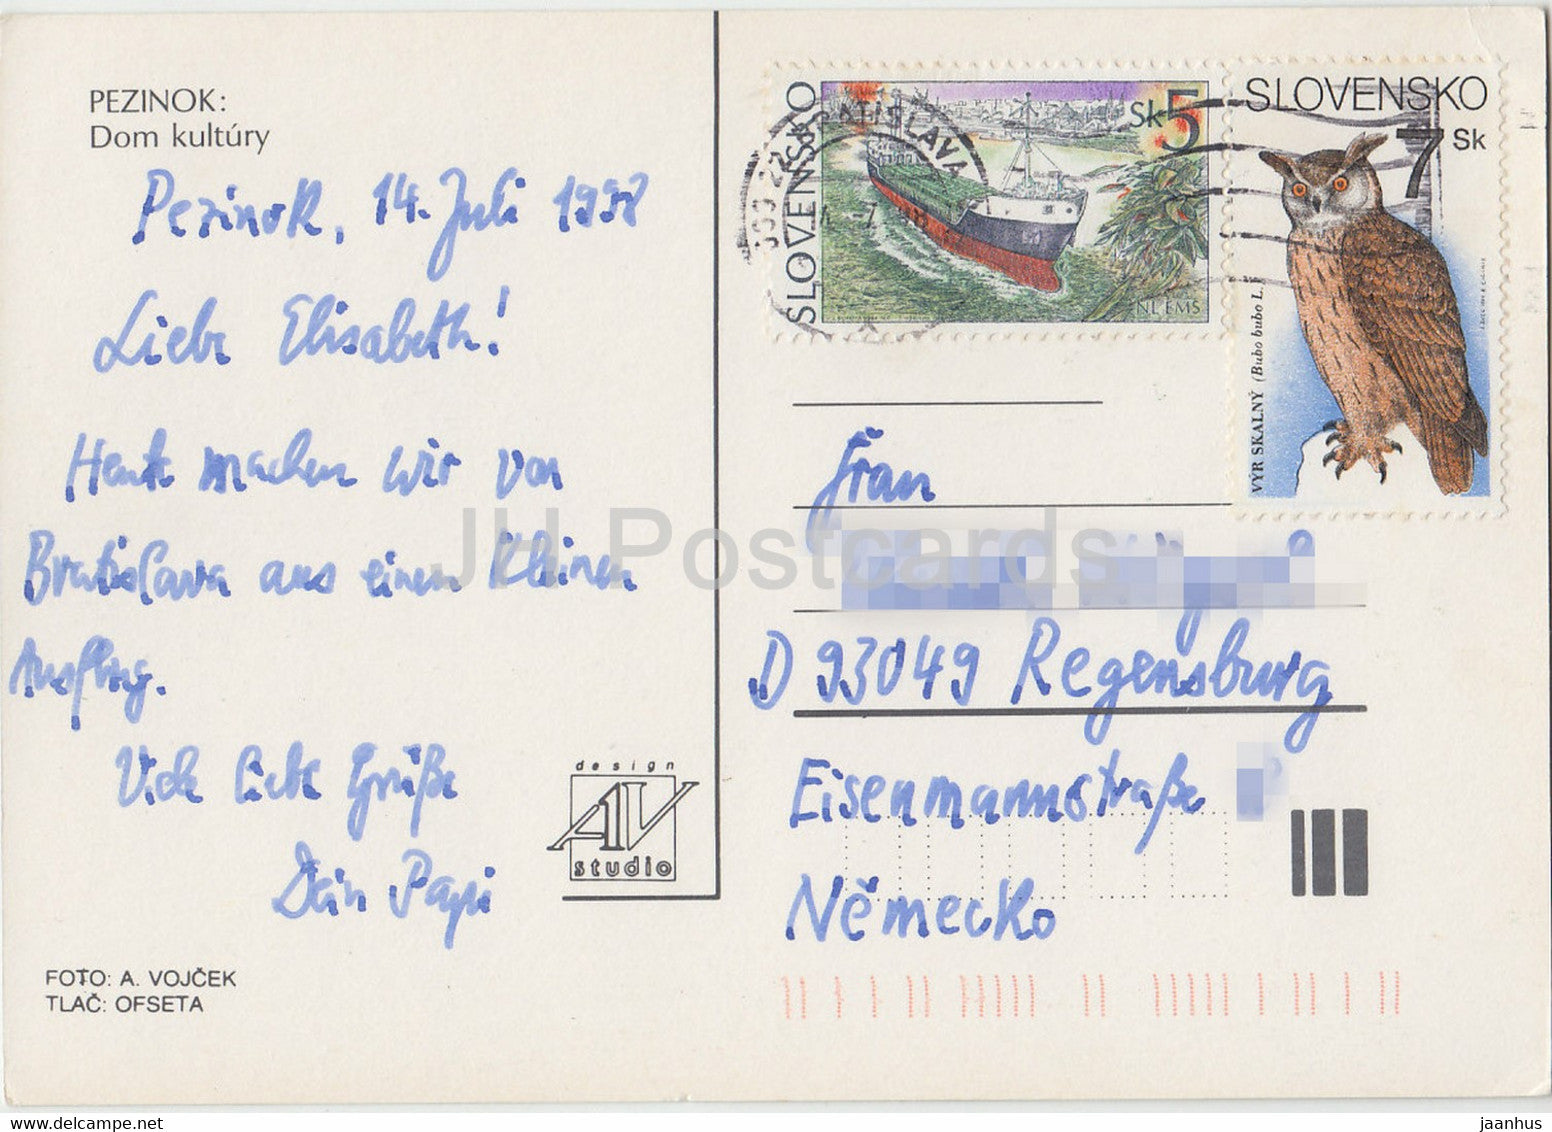 PEZINOK:
Dom kultúry
Pezinok, 14. Juli 1998
Liebe Elisabeth!
Heute machen wir von
Bratislava aus einen kleinen
Ausflug.
Viele liebe Grüße
Dein Papi
design
A1V
studio
FOTO: A. VOJČEK
TLAČ: OFSETA
SLOVENSKO
Sk 5
NL EMS
BRATISLAVA
SLOVENSKO
7 Sk
VÝR SKALNÝ (Bubo bubo L.)
Frau
D 93049 Regensburg
Eisenmannstraße
Německo
JH Postcards
jaanhus